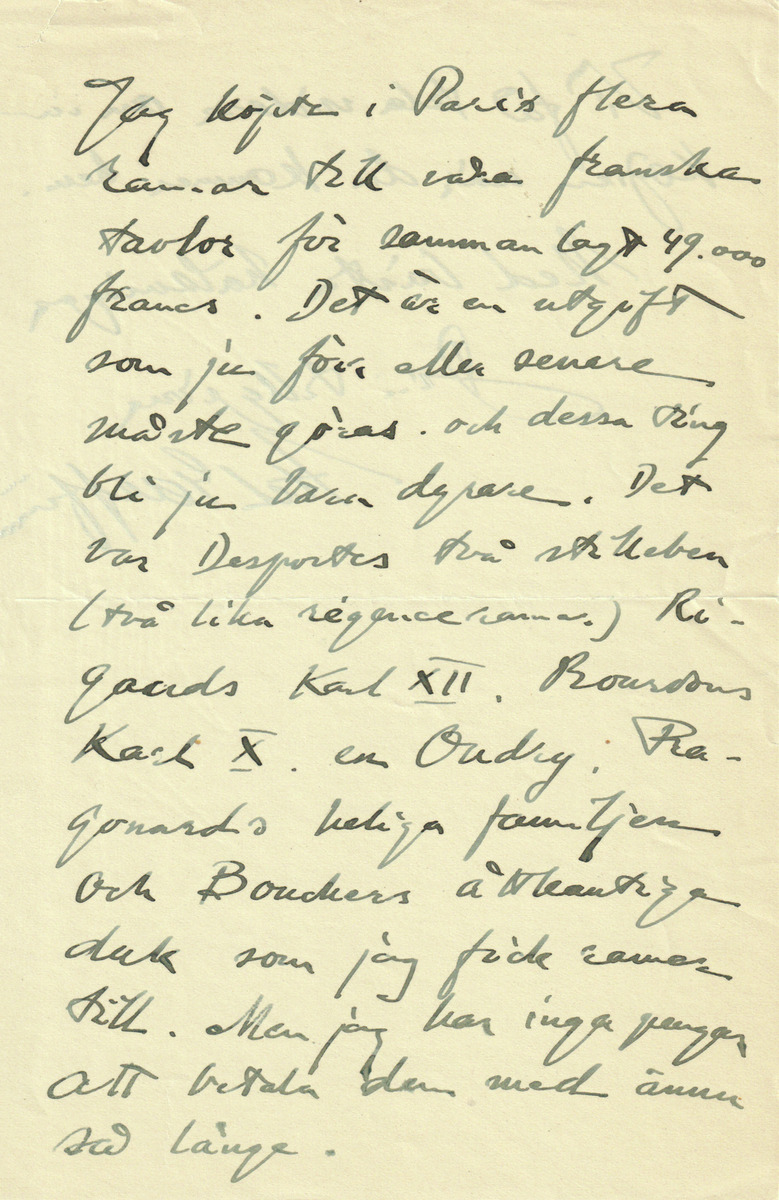 Jag köpte i Paris flera
ramar till våra franska
tavlor för sammanlagt 49.000
francs. Det är en utgift
som ju förr eller senare
måste göras. och dessa ting
bli ju bara dyrare. Det
var Desportes två stilleben
(två lika régenceramar.) Ri-
gauds Karl XII. Bourdons
Karl X. en Oudry. Fra-
gonards heliga familjen
och Bouchers åttkantiga
duk som jag fick ramar
till. Men jag har inga pengar
att betala dem med ännu
så länge.